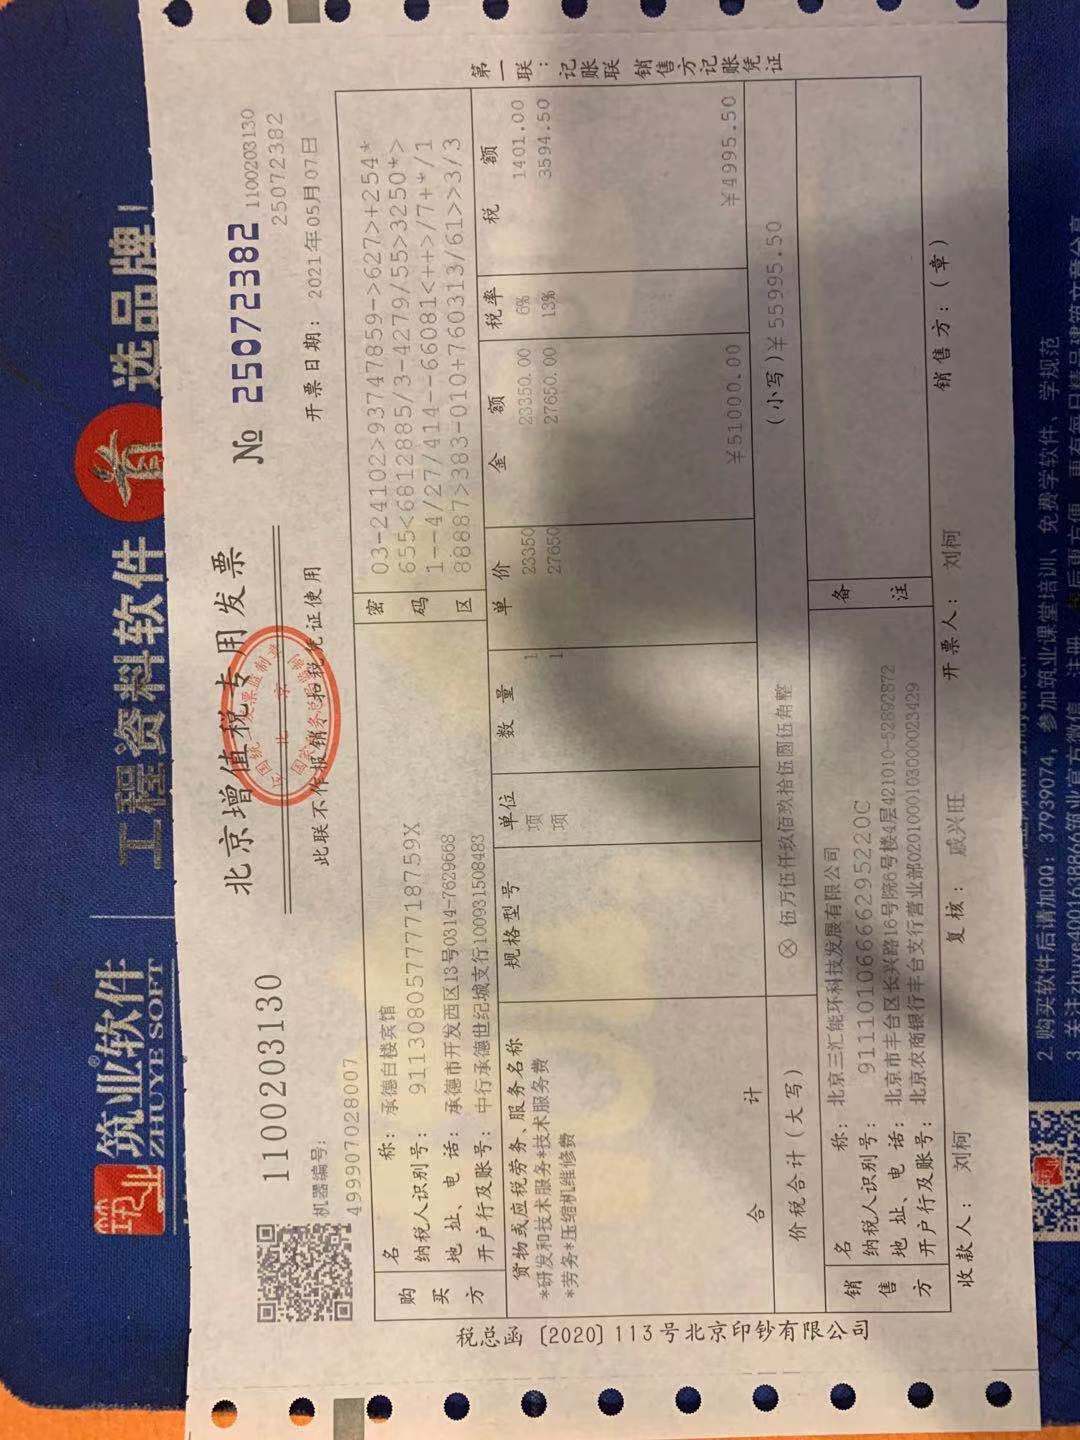 筑业®软件
ZHUYE SOFT
工程资料软件
选品牌
1100203130
北京增值税专用发票
№ 25072382
1100203130
25072382
此联不作报销、扣税凭证使用
开票日期: 2021年05月07日
机器编号:
499907028007
税总函〔2020〕113号北京印钞有限公司
第一联:记账联 销售方记账凭证
购买方
名 称: 承德白楼宾馆
纳税人识别号: 91130805777718759X
地 址、电 话: 承德市开发西区13号0314-7629668
开户行及账号: 中行承德世纪城支行100931508483
密码区
03-24102>93747859->627>+254*
655<6812885/3-4279/55>3250*>
1--4/27/414--66081<++>/7+*/1
88887>383-010+760313/61>>3/3
货物或应税劳务、服务名称 规格型号 单位 数量 单价 金额 税率 税额
*研发和技术服务*技术服务费 项 1 23350 23350.00 6% 1401.00
*劳务*压缩机维修费 项 1 27650 27650.00 13% 3594.50
合 计 ¥51000.00 ¥4995.50
价税合计(大写) ⊗ 伍万伍仟玖佰玖拾伍圆伍角整 (小写)¥55995.50
销售方
名 称: 北京三汇能环科技发展有限公司
纳税人识别号: 91110106666295220C
地 址、电 话: 北京市丰台区长兴路16号院6号楼4层421010-52892872
开户行及账号: 北京农商银行丰台支行营业部0201000103000023429
备注
收款人: 刘柯 复核: 戚兴旺 开票人: 刘柯 销售方:(章)
2.购买软件后请加QQ:37939074,参加筑业课堂培训、免费学软件、学规范